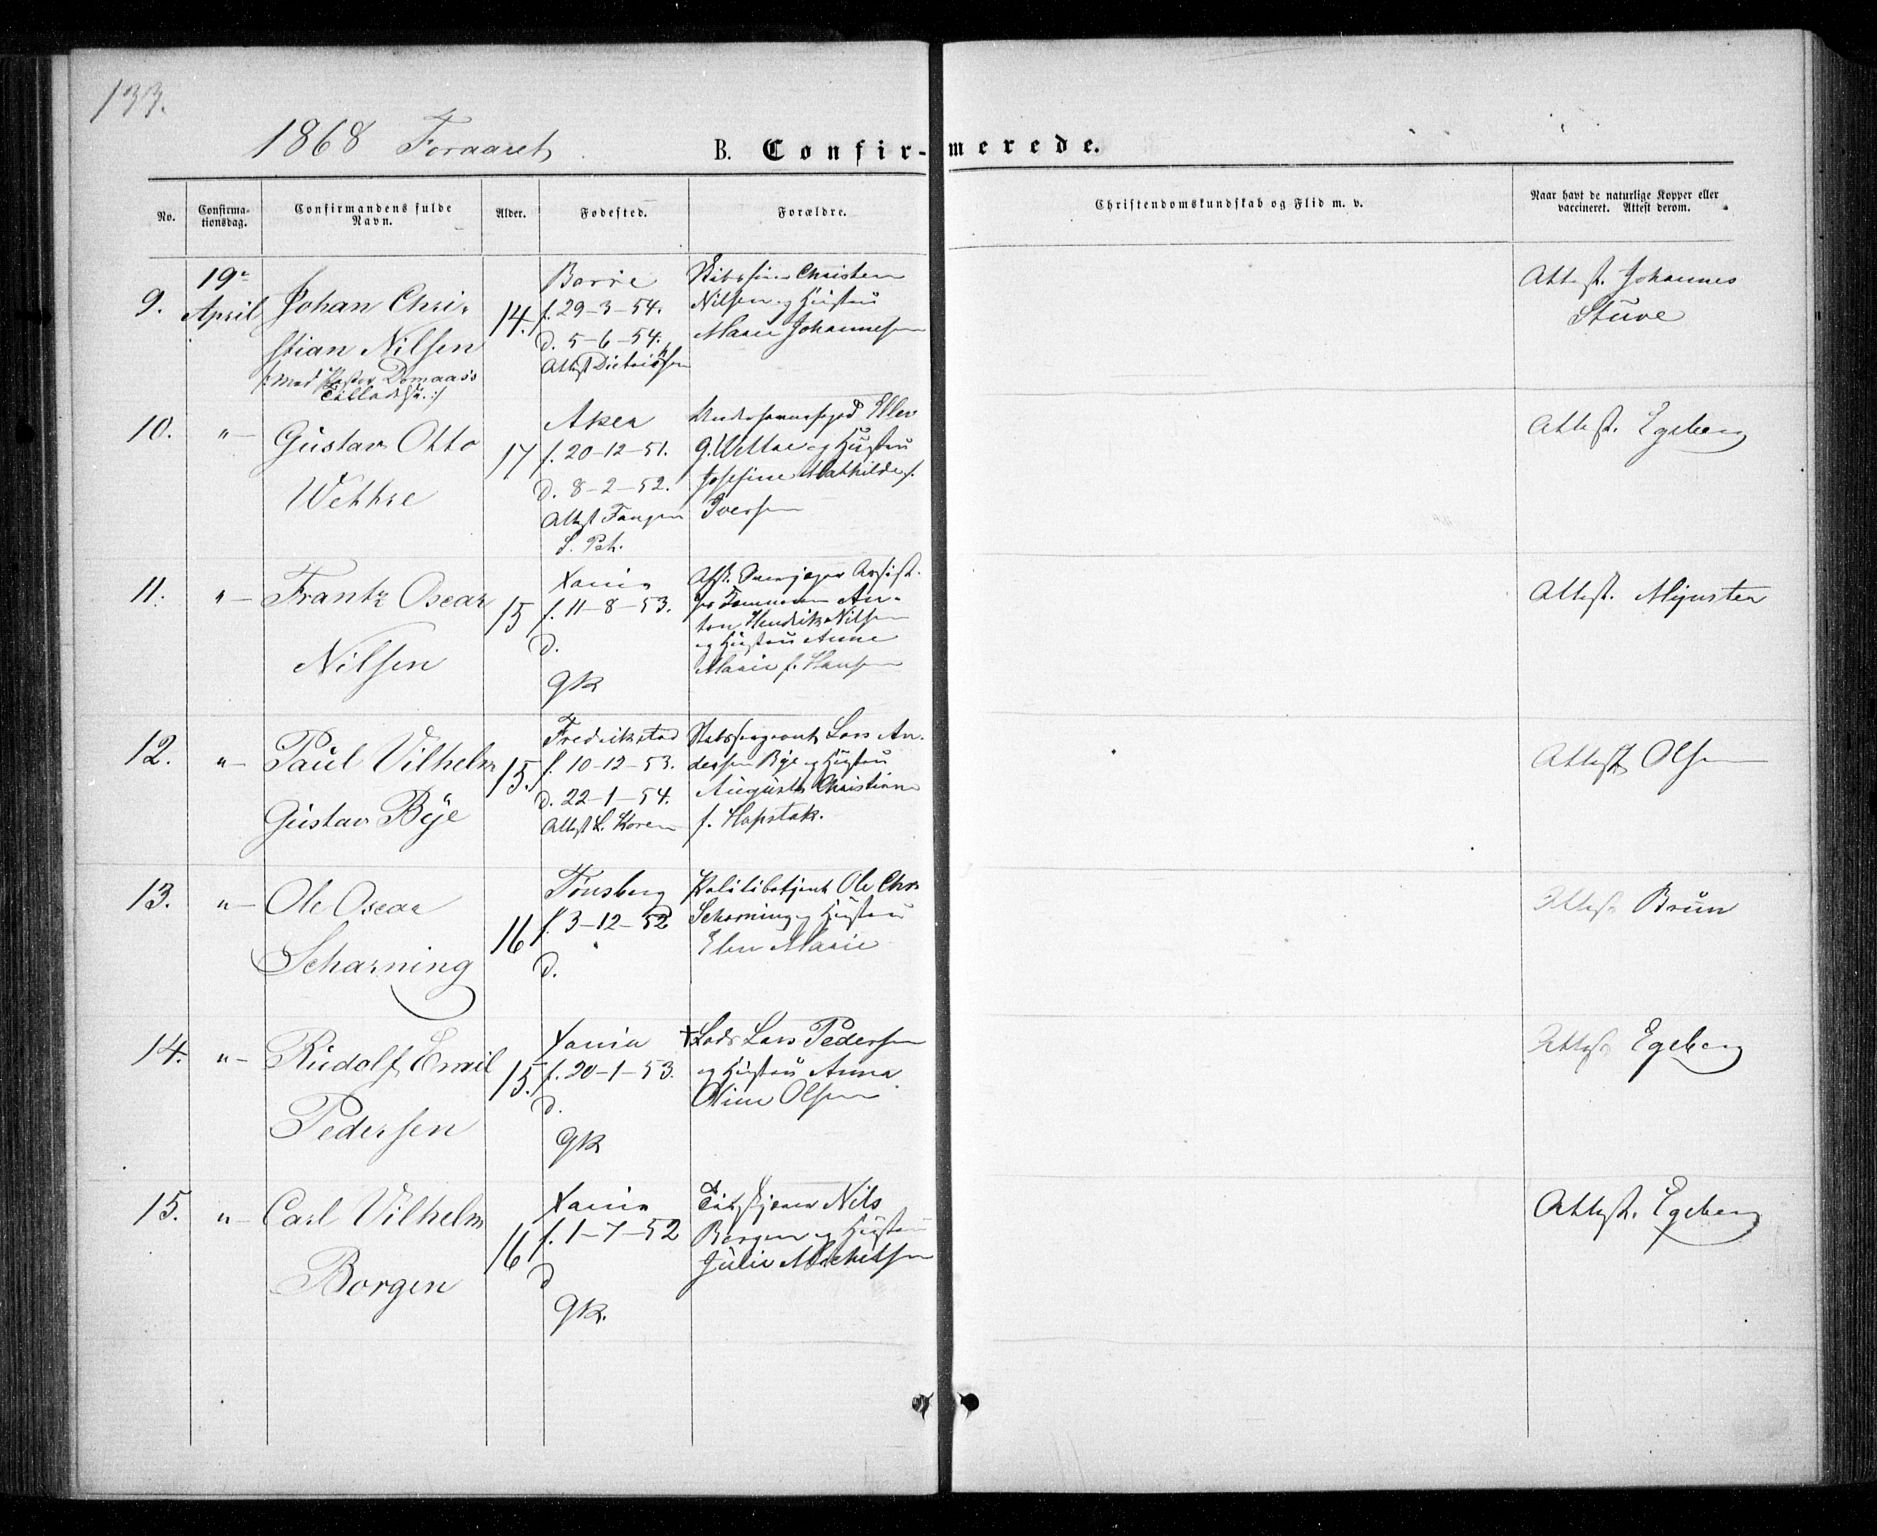 133.
1868 Foraaret
B. Confirmerede.
No.
Confirmationsdag.
Confirmandens fulde Navn.
Alder.
Fødested.
Forældre.
Christendomskundskab og Flid m. v.
Naar havt de naturlige Kopper eller vaccineret. Attest derom.
9.
19de April
Johan Chri-
stian Nilsen
14.
Borre
f. 29-3-54.
d. 5-6-54.
Christen
Nilsen og Hustru
Marie Johannesen
Attest. Johannes
Stuve
10.
"
Gustav Otto
Wettre
17
Aker
f. 20-12-51.
d. 8-2-52.
Attest Fangen
S. Pet.
G. Wettre og Hustru
Josefine Mathilde f.
Iversen
Attest. Egeberg
11.
"
Frantz Oscar
Nilsen
15
Xania
f. 11-8-53.
d.
gk
An-
ton Hendrik Nilsen
og Hustru Anne
Marie f. Hansen
Attest. Mynster
12.
"
Paul Vilhelm
Gustav Bye
15.
Fredrikstad
f. 10-12-53.
d. 22-1-54.
Attest L. Koren
Lars An-
dersen Bye og Hustru
Augusta Christine
f. Hapstok.
Attest Olsen
13.
"
Ole Oscar
Scharning
16
Tønsberg
f. 3-12-52
d.
Politibetjent Ole Chr.
Scharning og Hustru
Marie
Attest Brun
14.
"
Rudolf Emil
Pedersen
15.
Xania
f. 20-1-53.
d.
gk
† Lods Lars Pedersen
og Hustru Anna
Oline Olsen
Attest Egeberg
15.
"
Carl Vilhelm
Borgen
16
Xania
f. 1-7-52
d
gk.
Nils
Borgen og Hustru
Julie
Attest. Egeberg